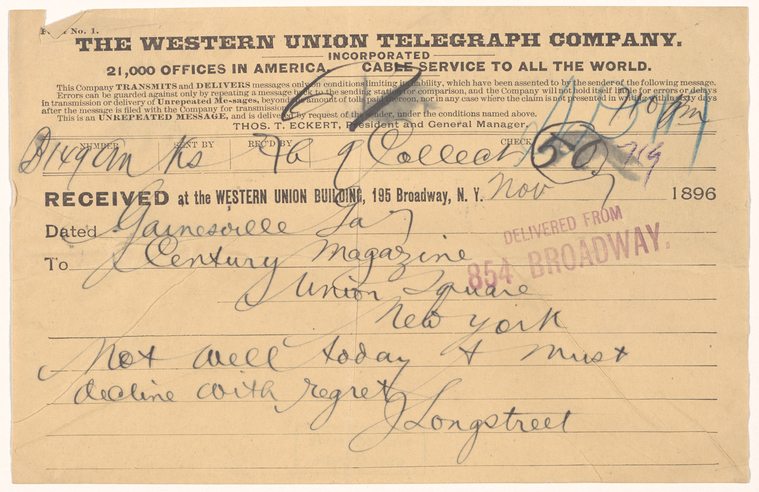 No. 1.
THE WESTERN UNION TELEGRAPH COMPANY.
INCORPORATED
21,000 OFFICES IN AMERICA. CABLE SERVICE TO ALL THE WORLD.
This Company TRANSMITS and DELIVERS messages only on conditions limiting its liability, which have been assented to by the sender of the following message.
Errors can be guarded against only by repeating a message back to the sending station for comparison, and the Company will not hold itself liable for errors or delays
in transmission or delivery of Unrepeated Messages, beyond the amount of tolls paid thereon, nor in any case where the claim is not presented in writing within sixty days
after the message is filed with the Company for transmission.
This is an UNREPEATED MESSAGE, and is delivered by request of the sender, under the conditions named above.
THOS. T. ECKERT, President and General Manager.
NUMBER SENT BY REC'D BY CHECK
9 Collect 50
RECEIVED at the WESTERN UNION BUILDING, 195 Broadway, N. Y. Nov 1896
Dated Gainesville Ga
To Century Magazine
Union Square
New York
DELIVERED FROM
854 BROADWAY.
Not well today & must
decline with regret
J Longstreet